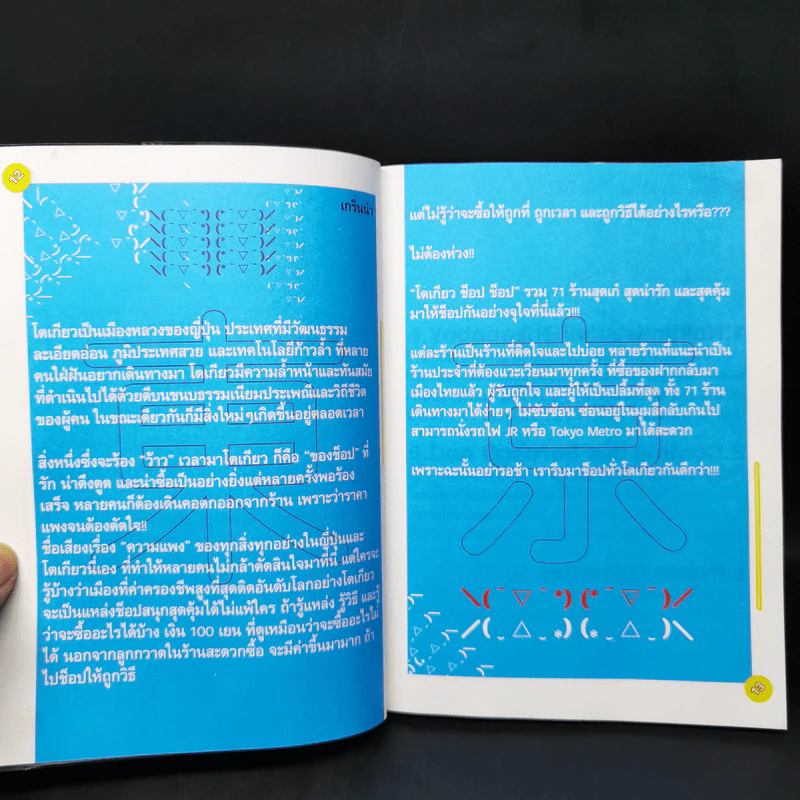 12
เกริ่นนำ
\(ˉ▽ˉ*)(*ˉ▽ˉ)/
โตเกียวเป็นเมืองหลวงของญี่ปุ่น ประเทศที่มีวัฒนธรรม
ละเอียดอ่อน ภูมิประเทศสวย และเทคโนโลยีก้าวล้ำ ที่หลาย
คนใฝ่ฝันอยากเดินทางมา โตเกียวมีความล้ำหน้าและทันสมัย
ที่ดำเนินไปได้ด้วยดีบนขนบธรรมเนียมประเพณีและวิถีชีวิต
ของผู้คน ในขณะเดียวกันก็มีสิ่งใหม่ๆเกิดขึ้นอยู่ตลอดเวลา
สิ่งหนึ่งซึ่งจะร้อง “ว้าว” เวลามาโตเกียว ก็คือ “ของช็อป” ที่
รัก น่าดึงดูด และน่าซื้อเป็นอย่างยิ่งแต่หลายครั้งพอร้อง
เสร็จ หลายคนก็ต้องเดินคอตกออกจากร้าน เพราะว่าราคา
แพงจนต้องตัดใจ!!
ชื่อเสียงเรื่อง “ความแพง” ของทุกสิ่งทุกอย่างในญี่ปุ่นและ
โตเกียวนี่เอง ที่ทำให้หลายคนไม่กล้าตัดสินใจมาที่นี่ แต่ใครจะ
รู้บ้างว่าเมืองที่ค่าครองชีพสูงที่สุดติดอันดับโลกอย่างโตเกียว
จะเป็นแหล่งช็อปสนุกสุดคุ้มได้ไม่แพ้ใคร ถ้ารู้แหล่ง รู้วิธี และรู้
ว่าจะซื้ออะไรได้บ้าง เงิน 100 เยน ที่ดูเหมือนว่าจะซื้ออะไรไม่
ได้ นอกจากลูกกวาดในร้านสะดวกซื้อ จะมีค่าขึ้นมามาก ถ้า
ไปช็อปให้ถูกวิธี
แต่ไม่รู้ว่าจะซื้อให้ถูกที่ ถูกเวลา และถูกวิธีได้อย่างไรหรือ???
ไม่ต้องห่วง!!
“โตเกียว ช็อป ช็อป” รวม 71 ร้านสุดเก๋ สุดน่ารัก และสุดคุ้ม
มาให้ช็อปกันอย่างจุใจที่นี่แล้ว!!!
แต่ละร้านเป็นร้านที่ติดใจและไปบ่อย หลายร้านที่แนะนำเป็น
ร้านประจำที่ต้องแวะเวียนมาทุกครั้ง ที่ซื้อของฝากกลับมา
เมืองไทยแล้ว ผู้รับถูกใจ และผู้ให้เป็นปลื้มที่สุด ทั้ง 71 ร้าน
เดินทางมาได้ง่ายๆ ไม่ซับซ้อน ซ่อนอยู่ในมุมลึกลับเกินไป
สามารถนั่งรถไฟ JR หรือ Tokyo Metro มาได้สะดวก
เพราะฉะนั้นอย่ารอช้า เรารีบมาช็อปทั่วโตเกียวกันดีกว่า!!!
\(ˉ▽ˉ*)(*ˉ▽ˉ)/
/(ˉ△ˉ*)(*ˉ△ˉ)\
13